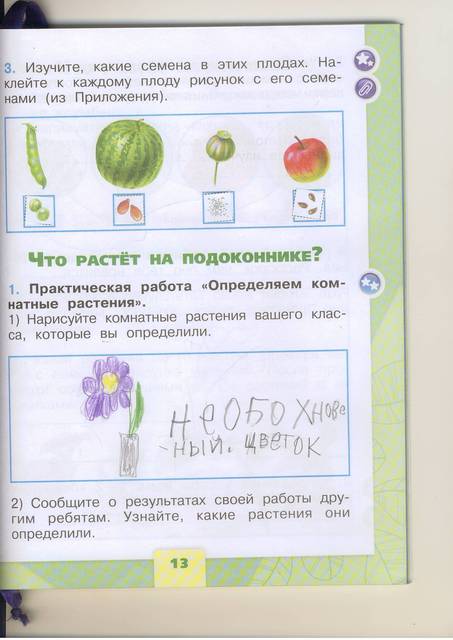 3. Изучите, какие семена в этих плодах. На-
клейте к каждому плоду рисунок с его семе-
нами (из Приложения).
Что растёт на подоконнике?
1. Практическая работа «Определяем ком-
натные растения».
1) Нарисуйте комнатные растения вашего клас-
са, которые вы определили.
НЕОБОХНОВЕ
-НЫЙ. ЦВЕТОК
2) Сообщите о результатах своей работы дру-
гим ребятам. Узнайте, какие растения они
определили.
13